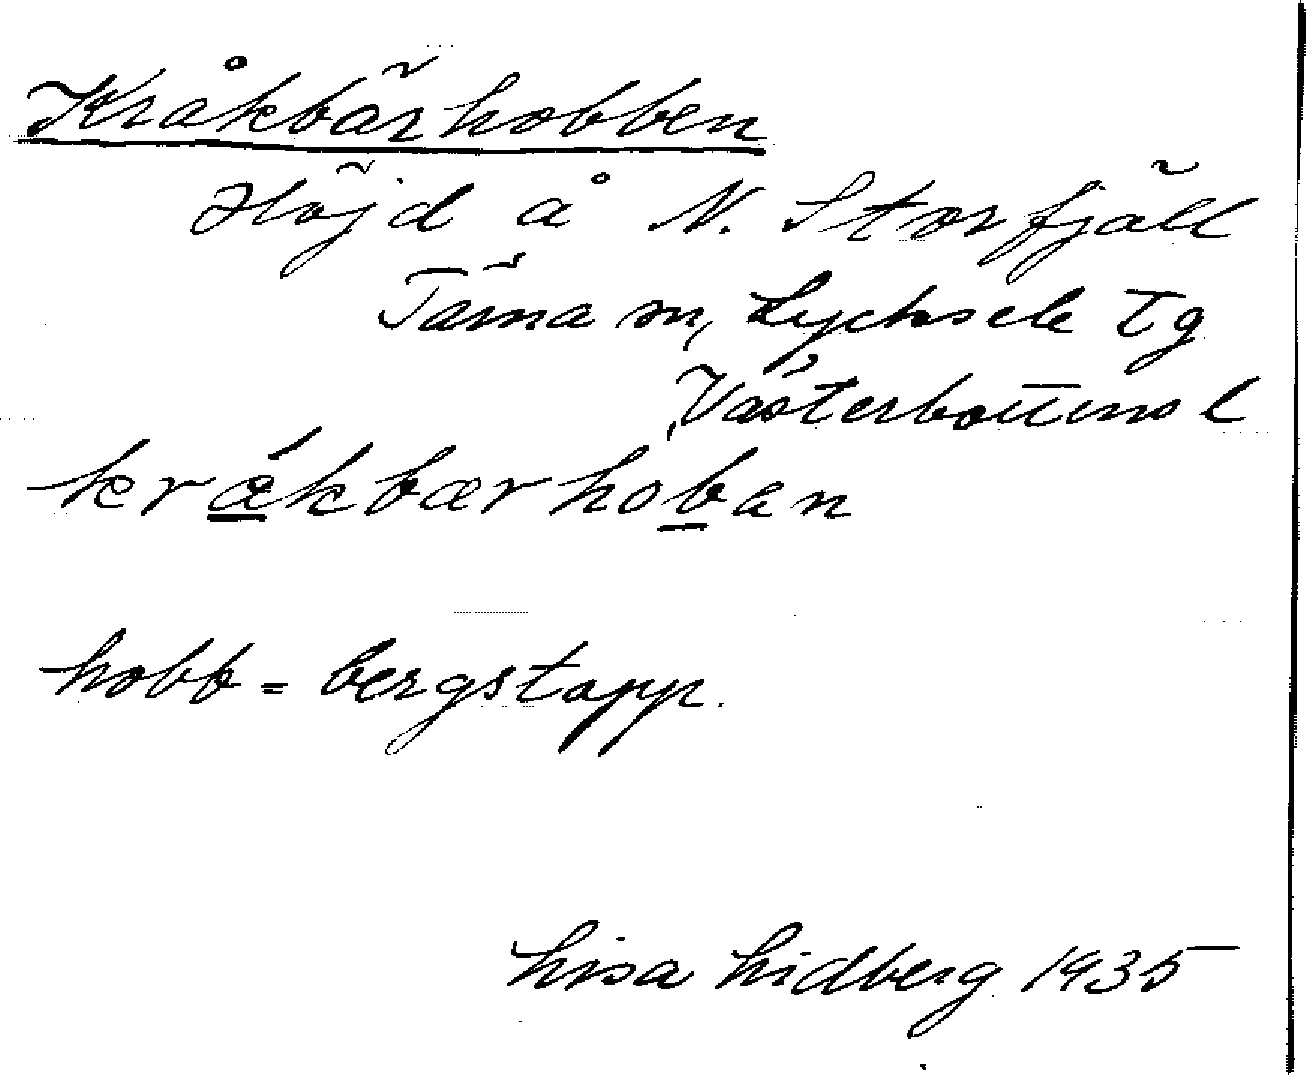 Kråkbärhobben
Höjd å N. Storfjäll
Tärna sn, Lycksele tg
Västerbottens l
kråkbærhoban
hobb = bergstapp.
Lisa Lidberg 1935